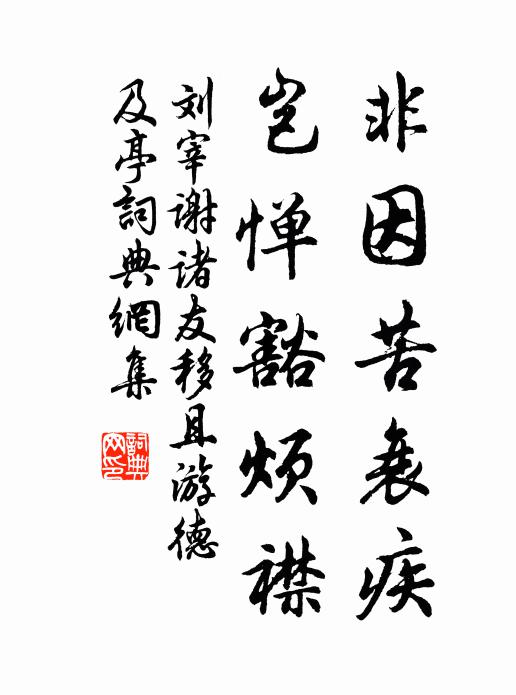 非因苦衰疾
岂惮豁烦襟
刘宰谢诸友移具游德
及亭詞典網集
詞典網印